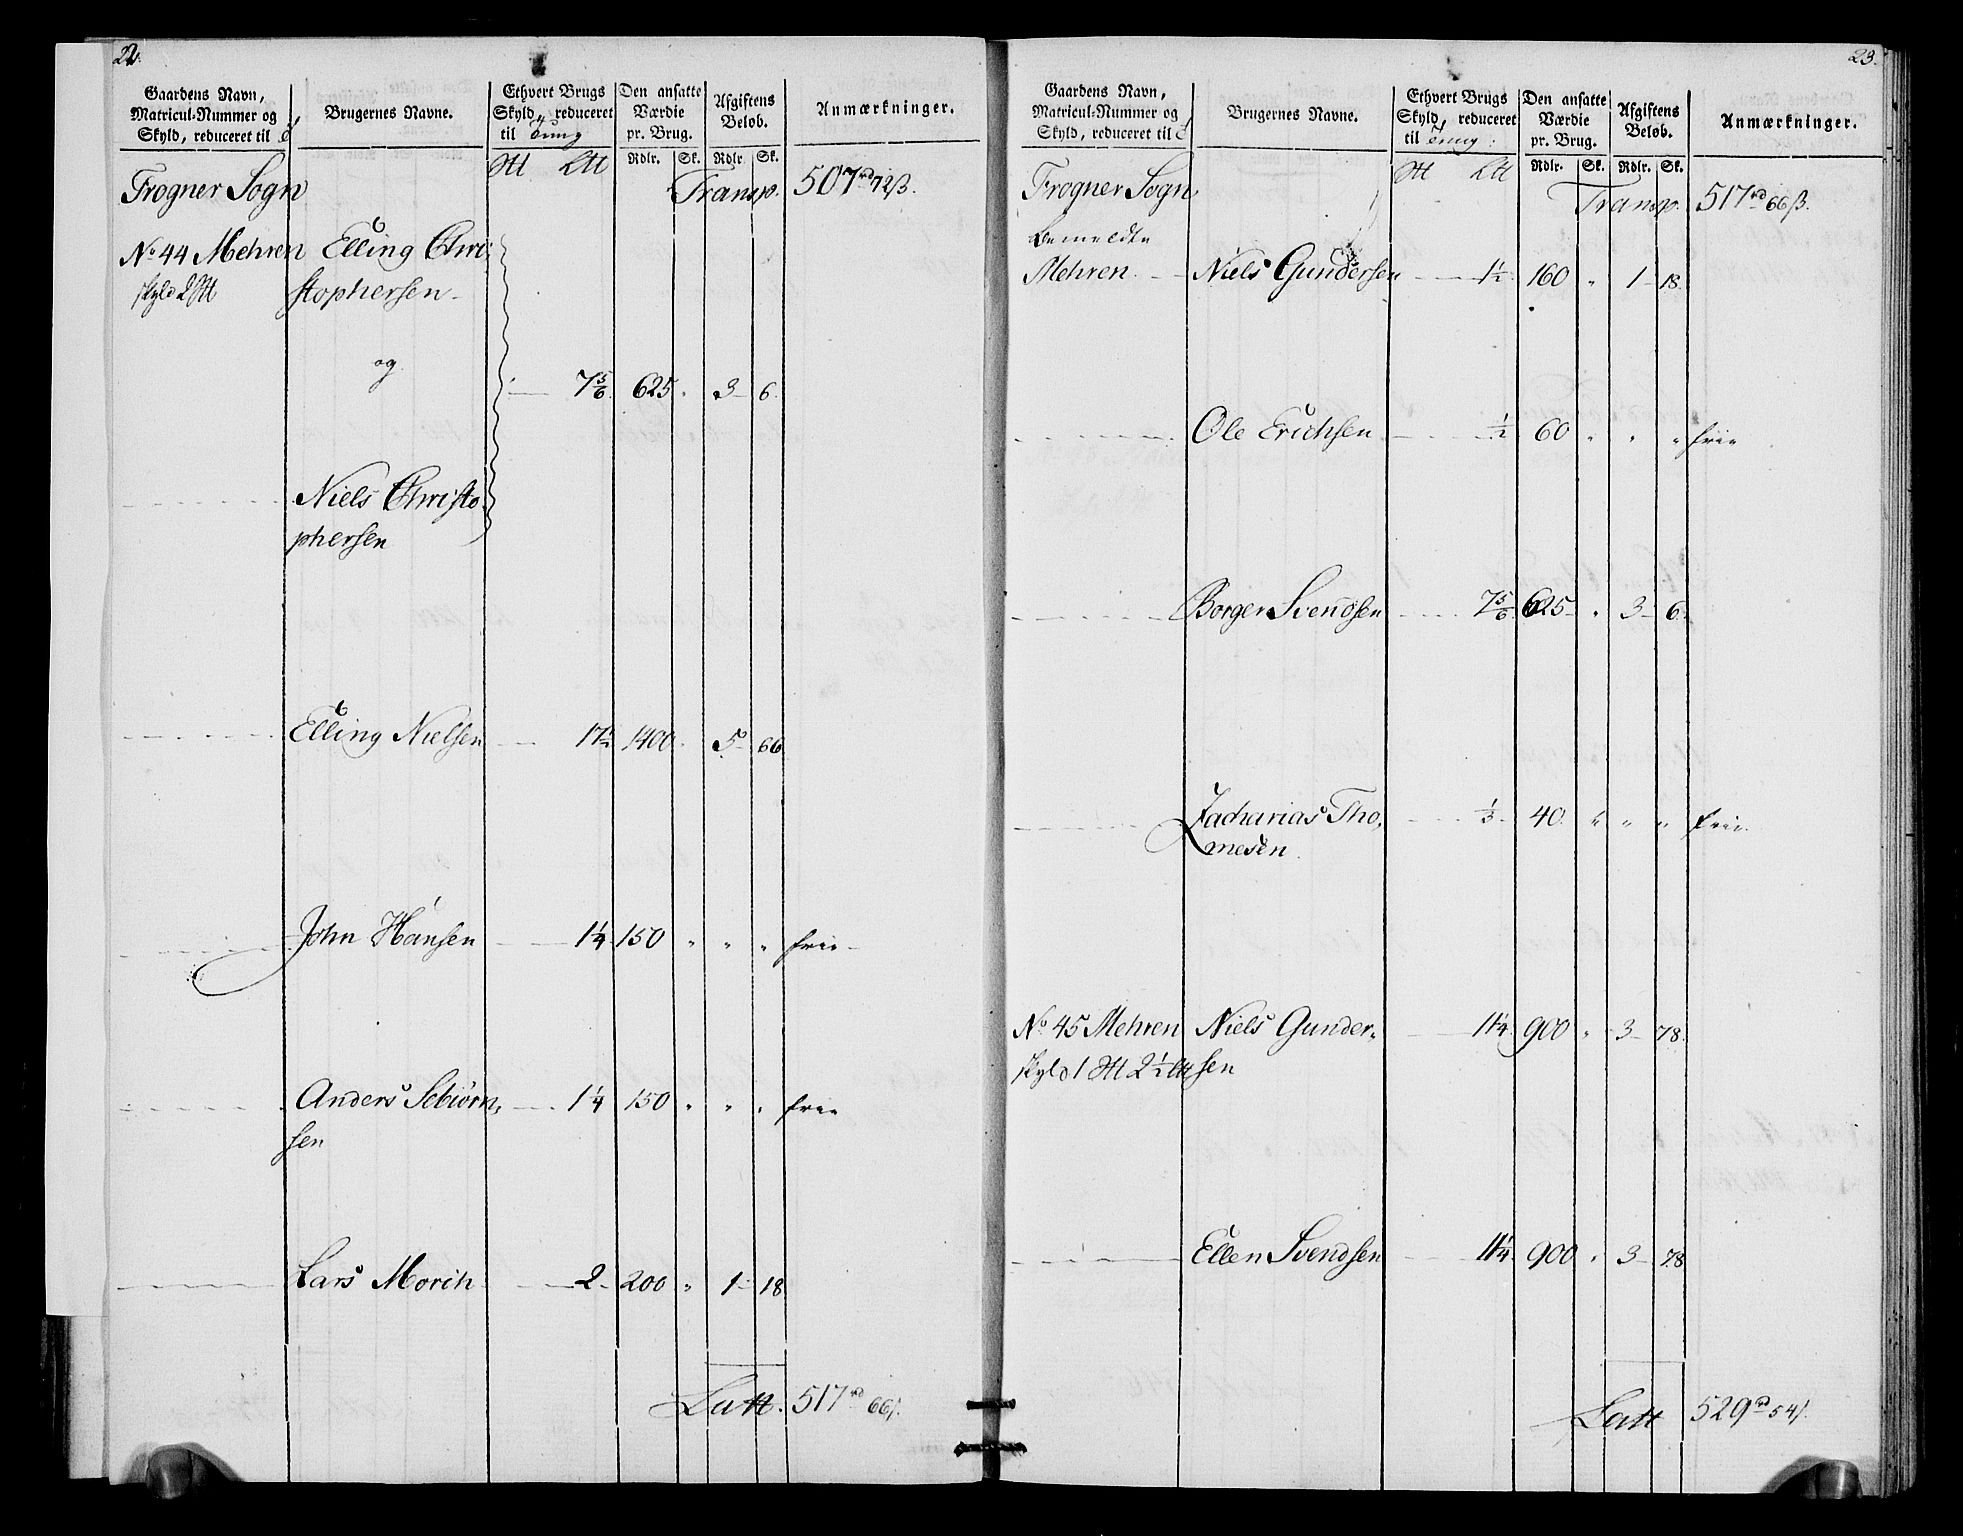 22.
Gaardens Navn,
Matricul-Nummer og
Skyld, reduceret til
Brugernes Navne.
Ethvert Brugs
Skyld, reduceret
til Tung
Den ansatte
Værdie
pr. Brug.
Rdlr. Sk.
Afgiftens
Beløb.
Rdlr. Sk.
Anmærkninger.
Frogner Sogn Transp. 507 rd 72 ß.
No. 44 Mehren Elling Chri-
skyld 2 stophersen
og 7 5/6 625 " 3 6.
Niels Christo-
phersen
Elling Nielsen 17 1/2 1400 " 5 66
John Hansen 1 1/4 150 " " " frie
Anders Sebiørn-
sen 1 1/4 150 " " " frie
Lars Morih 2 200 " 1 18
Latt. 517 rd 66 ß.
23.
Gaardens Navn,
Matricul-Nummer og
Skyld, reduceret til
Brugernes Navne.
Ethvert Brugs
Skyld, reduceret
til Tung
Den ansatte
Værdie
pr. Brug.
Rdlr. Sk.
Afgiftens
Beløb.
Rdlr. Sk.
Anmærkninger.
Frogner Sogn Transp. 517 rd 66 ß.
Bemeldte
Mehren Niels Gundersen 1 1/2 160 " 1 18.
Ole Erichsen 1/2 60 " " " frie
Borger Svendsen 7 5/6 625 " 3 6.
Zacharias Tho-
mesen 1/3 40. " " " frie.
No. 45 Mehren Niels Gunder- 11 1/4 900 " 3 78.
skyld 1 2 1/2 sen
Ellen Svendsen 11 1/4 900 " 3 78
Latt 529 rd 54 ß.